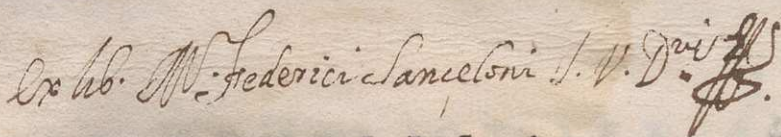 ex lib. M. Federici Sanceloni I. V. D.ris